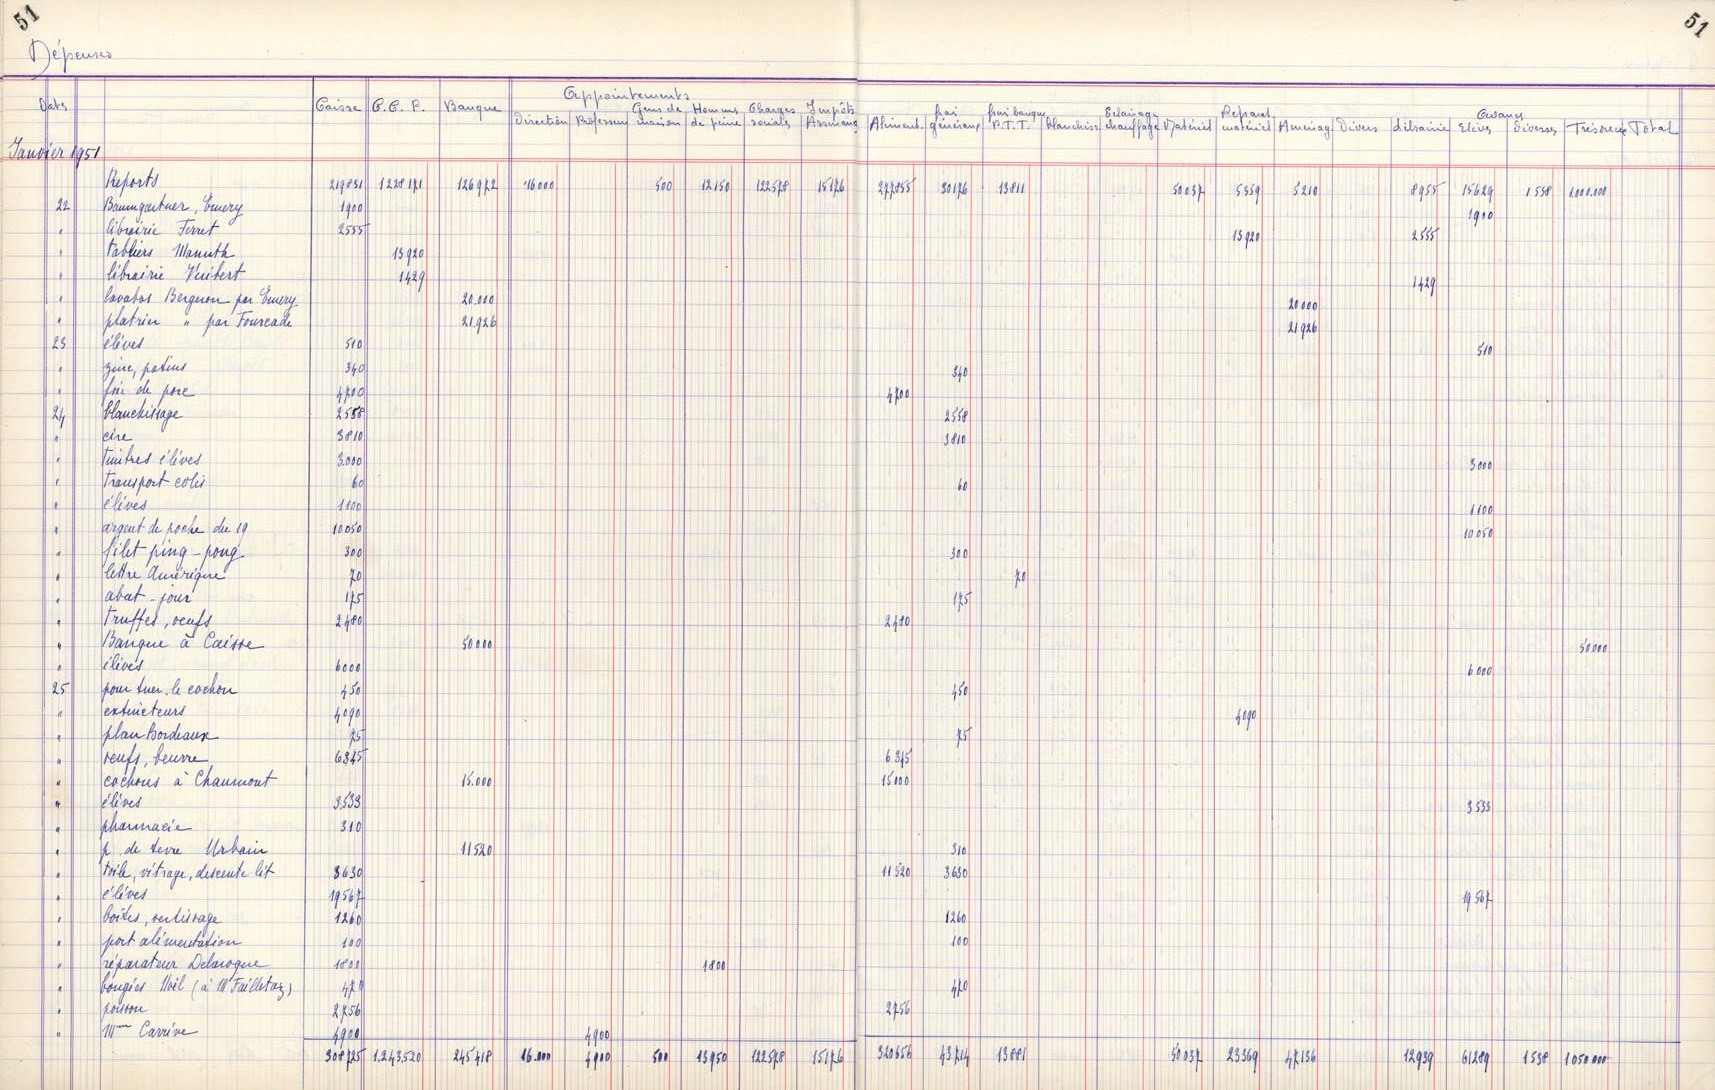 51
51
Dépenses
Appointements
Avances
Dates Caisse C.C.P. Banque Direction Professeurs Gens de maison Hommes de peine Charges sociales Impôts Assurang Aliment. frai généraux frai banque P.T.T. blanchiss Eclairage chauffage Matériel Réparat. matériel Aménag Divers Librairie Elèves Diverses Trésorerie Total
Janvier 1951
Reports 219831 1228171 126972 16.000 500 12150 122578 15176 277855 30176 13811 50037 5359 5210 8955 15629 1538 1.000.000
22 Baumgartner, Emery 1900 1900
" librairie Ferret 2555 2555
" tabliers Mamuth 13920 13920
" librairie Vuibert 1429 1429
" lavabos Bergnon par Emery 20.000 20000
" platrier " par Fourcade 21926 21926
23 élèves 510 510
" zinc, patins 340 340
" foie de porc 4700 4700
24 blanchissage 2558 2558
" cire 3810 3810
" timbres élèves 3.000 3000
" transport colis 60 60
" élèves 1100 1100
" argent de poche du 19 10050 10050
" filet ping-pong 300 300
" lettre Amérique 70 70
" abat-jour 175 175
" truffes, oeufs 2480 2480
" Banque à Caisse 50000 50000
" élèves 6000 6000
25 pour tuer le cochon 450 450
" extincteurs 4090 4090
" plan Bordeaux 75 75
" oeufs, beurre 6345 6345
" cochons à Chaumont 15.000 15000
" élèves 3533 3533
" pharmacie 310 310
" p. de terre Urbain 11520 11520
" toile, vitrage, descente lit 3630 3630
" élèves 19567 19567
" boîtes, sertissage 1260 1260
" port alimentation 100 100
" réparateur Delarogue 1800 1800
" bougies Noël (à M Failletaz) 470 470
" poisson 2756 2756
" Mme Carrive 4900 4900
308725 1.243520 245418 16.000 4900 500 13950 122578 15176 320656 43714 13881 50037 23369 47136 12939 61289 1538 1050000